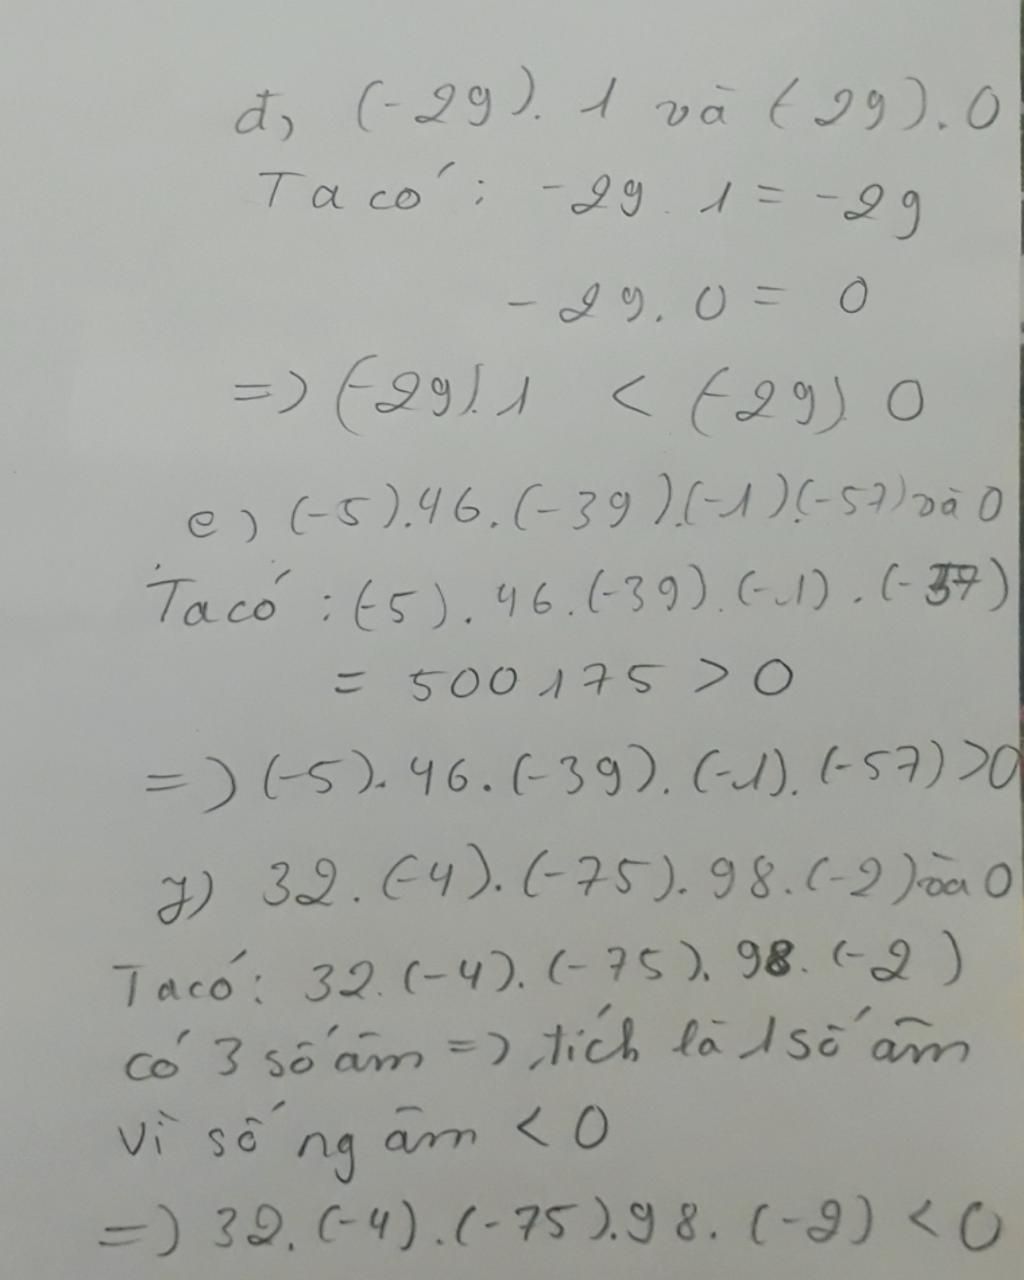 đ, (-29). 1 và (-29). 0
Ta có : -29. 1 = -29
-29. 0 = 0
=) (-29). 1 < (-29). 0
e) (-5).46.(-39).(-1).(-57) và 0
Ta có : (-5). 46.(-39).(-1).(-57)
= 500175 > 0
=) (-5). 46.(-39).(-1).(-57) >0
g) 32.(-4).(-75).98.(-2) và 0
Ta có: 32.(-4).(-75).98.(-2)
có 3 số âm =) tích là 1 số âm
vì số ng âm < 0
=) 32.(-4).(-75).98.(-2) < 0